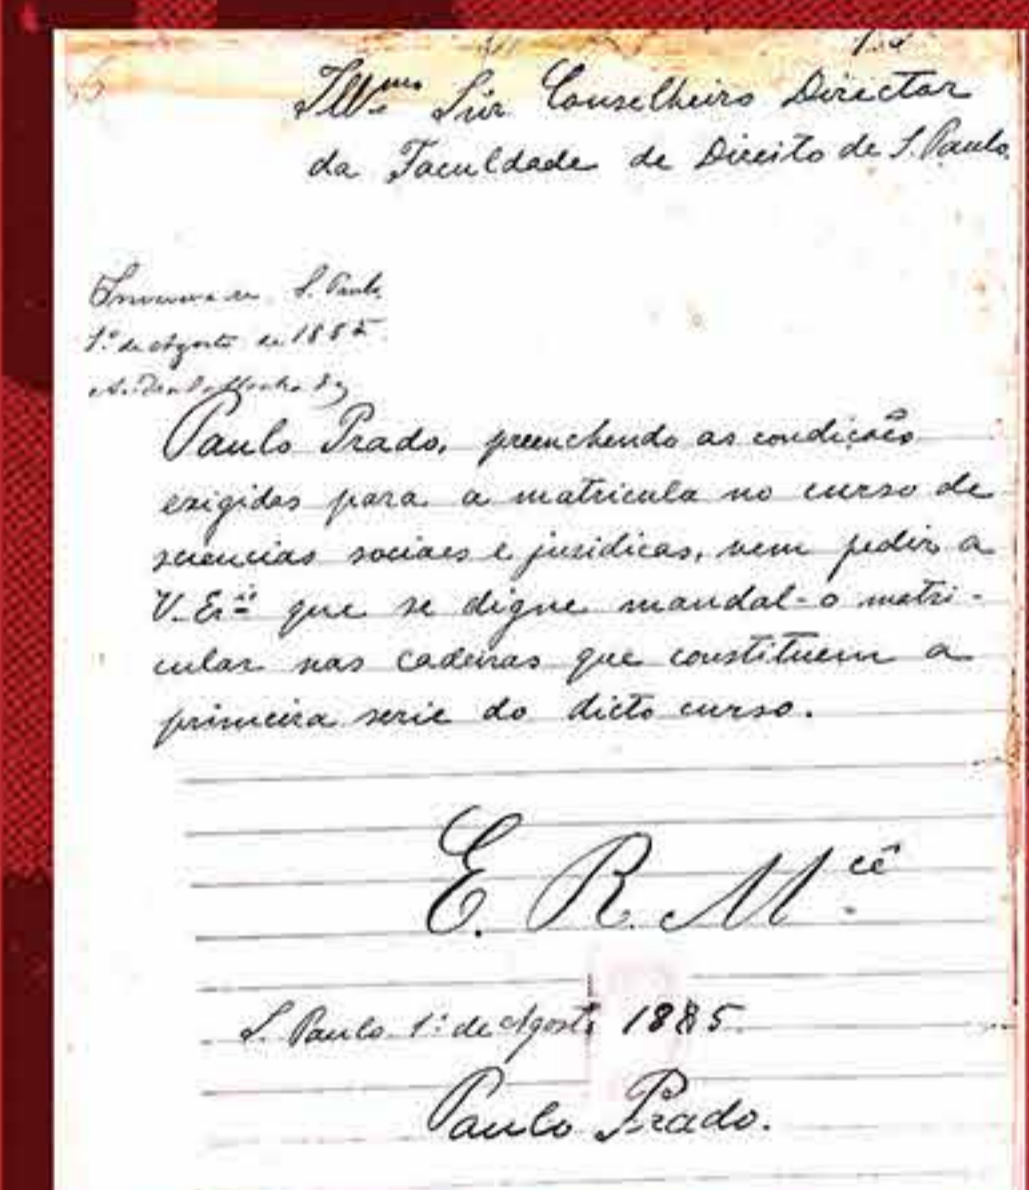 Illmo Snr Conselheiro Director
da Faculdade de Direito de S. Paulo.
S. Paulo
1º de Agosto de 1885
Paulo Prado, preenchendo as condições
exigidas para a matricula no curso de
sciencias sociaes e juridicas, vem pedir a
V. Exª que se digne mandal-o matri-
cular nas cadeiras que constituem a
primeira serie do dicto curso.
E. R. Mcê
S. Paulo 1º de Agosto 1885.
Paulo Prado.